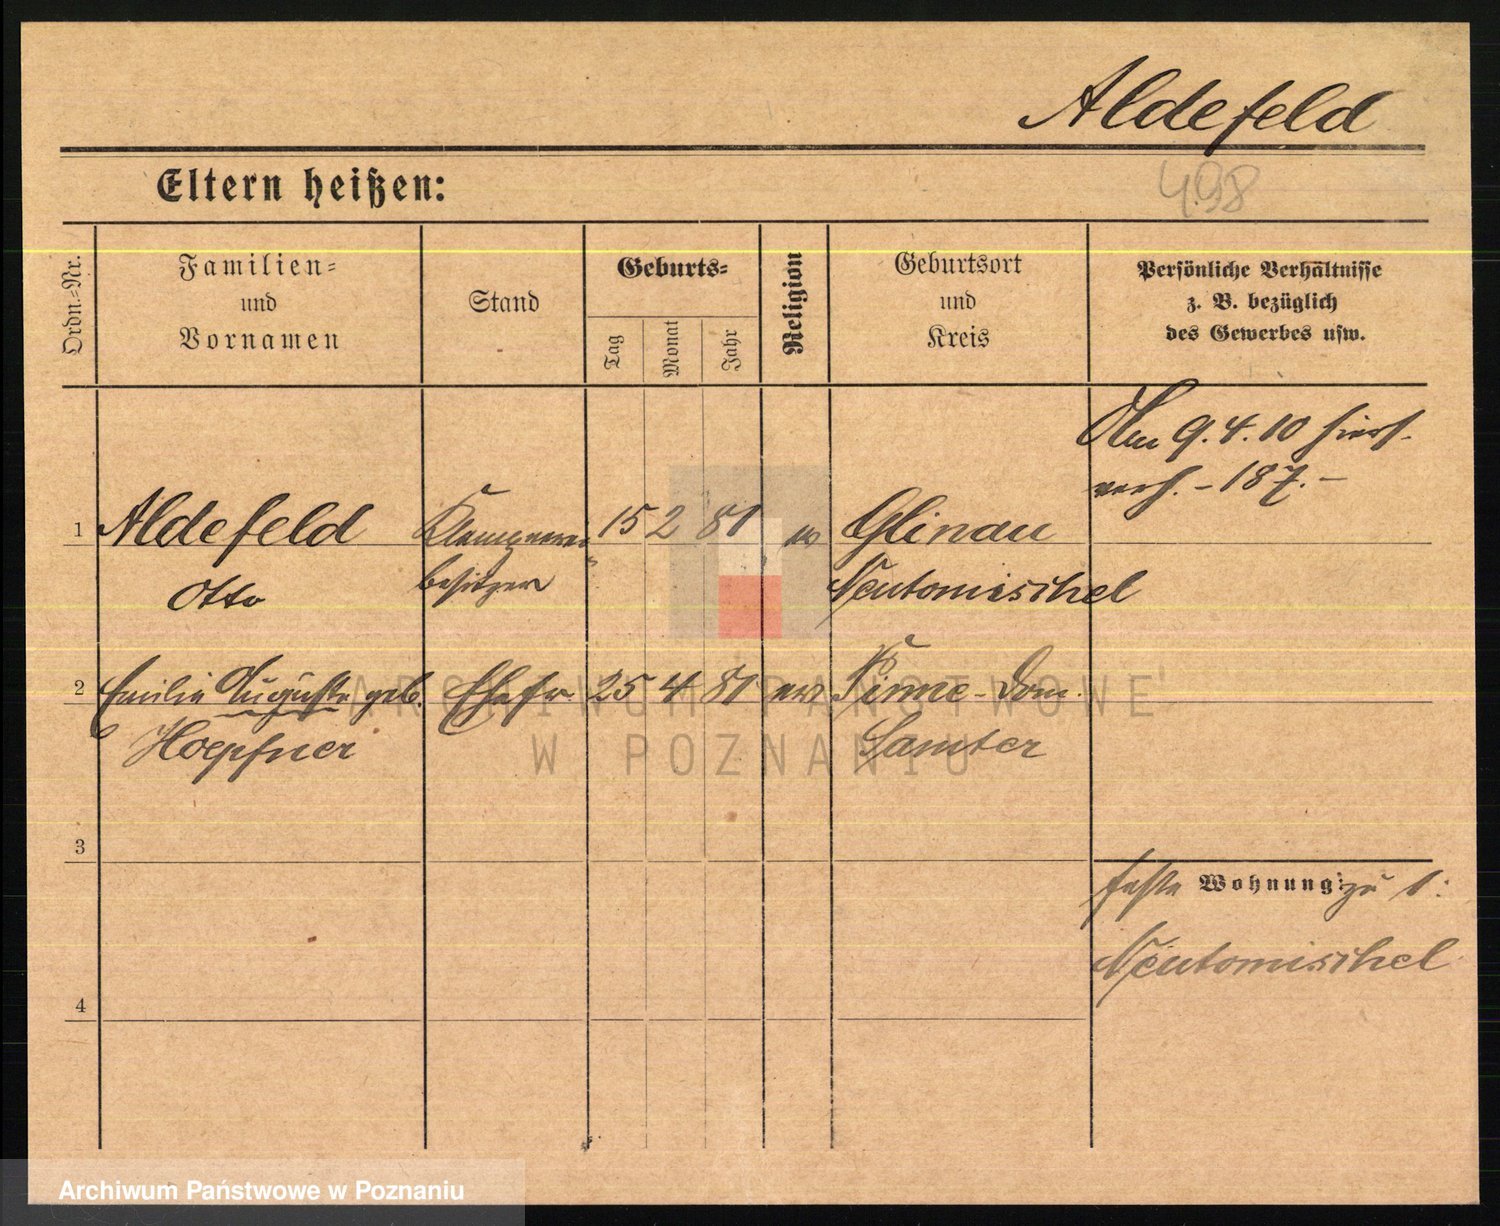 Aldefeld
498
Eltern heißen:
Ordn.-Nr.
Familien-
und
Vornamen
Stand
Geburts-
Tag
Monat
Jahr
Religion
Geburtsort
und
Kreis
Persönliche Verhältnisse
z. B. bezüglich
des Gewerbes usw.
Am 9. 4. 10 hiers.
verh. - 187. -
1 Aldefeld Klempnerei- 15 2 81 ev Glinau
Otto besitzer Neutomischel
2 Emilie Auguste geb. Ehefr. 25 4 81 ev Pinne-Dom.
Hoepfner Samter
3
feste Wohnung: zu 1:
Neutomischel
4
ARCHIWUM PAŃSTWOWE
W POZNANIU
Archiwum Państwowe w Poznaniu